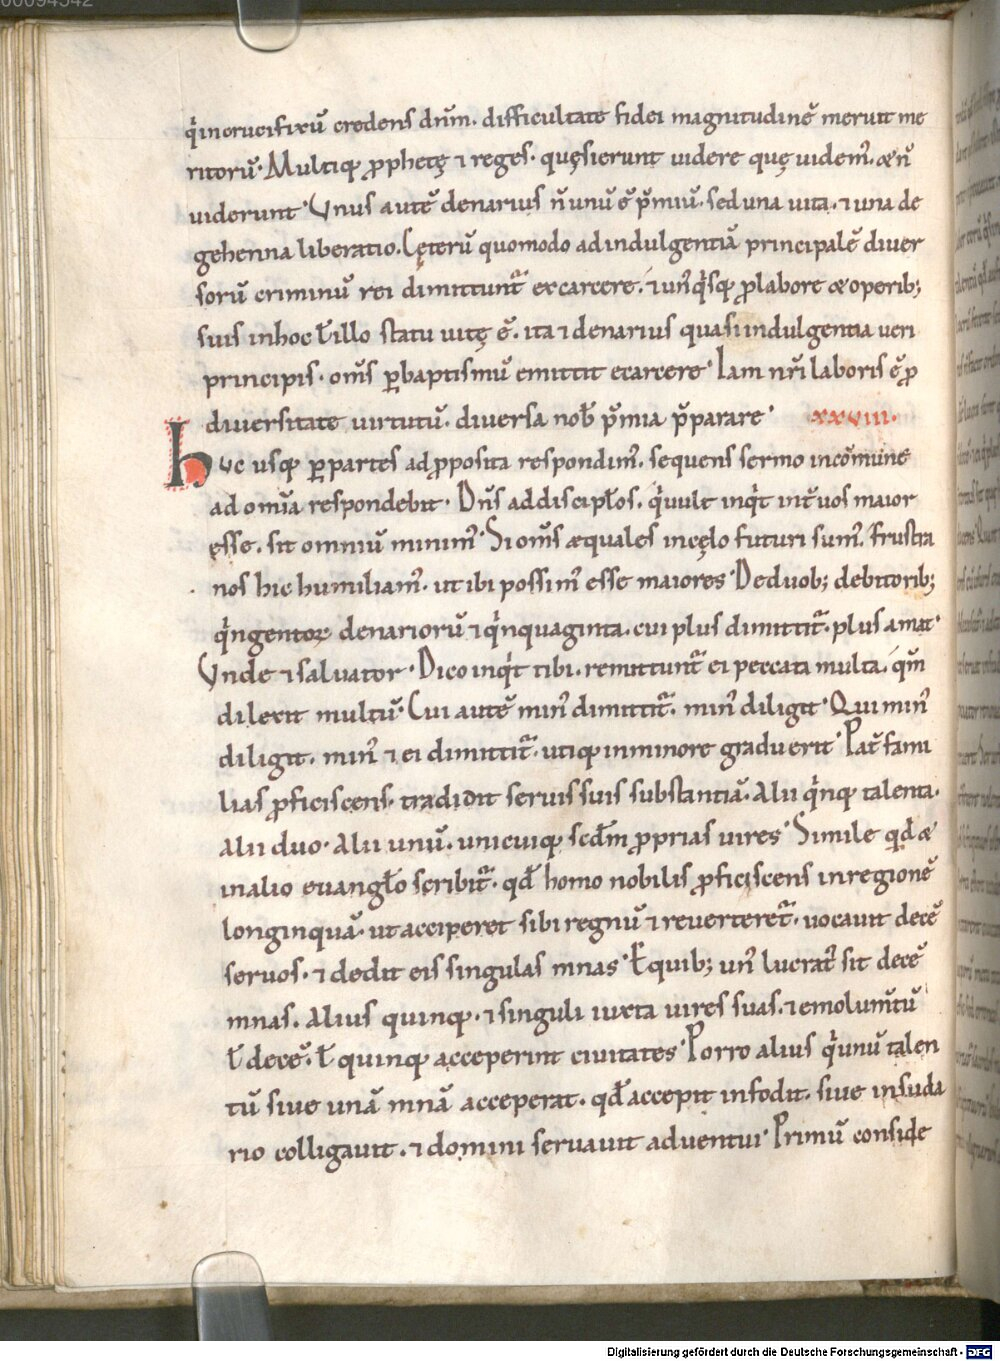 q̇incrucifixũ credens dñm. difficultate fidei magnitudinẽ meruit me
ritorũ. Multiq; ꝓphetę ⁊ reges. quęsierunt uidere quę uidem̃. & ñ
uiderunt. Vnus autẽ denarius ñ unũ ẽ p̃miũ. sed una uita. ⁊ una de
gehenna liberatio. Cęterũ quomodo ad indulgentiã principalẽ diuer
sorũ criminũ rei dimittunt᷑ ex carcere. ⁊ un᷒q̇sq; ꝓ labore & operib;
suis in hoc ł illo statu uitę ẽ. ita ⁊ denarius quasi indulgentia ueri
principis. om̃s ꝑ baptismũ emittit e carcere. Iam nr̃i laboris ẽ ꝓ
diuersitate uirtutũ. diuersa nob̃ p̃mia p̃parare. xxviii.
Huc usq; ꝑ partes ad ꝓposita respondim᷒. sequens sermo in cõmune
ad om̃ia respondebit. Dñs ad discipłos. q̇ uult inq̇t int̃ uos maior
esse. sit omniũ minim᷒. Si om̃s æquales in cęlo futuri sum᷒. frustra
nos hic humiliam᷒. ut ibi possim᷒ esse maiores. De duob; debitorib;
q̇ngentoꝝ denariorũ ⁊ q̇nquaginta. cui plus dimittit᷑. plus amat.
Vnde ⁊ saluator. Dico inq̇t tibi. remittunt᷑ ei peccata multa. qm̃
dilexit multũ. Cui autẽ min᷒ dimittit᷑. min᷒ diligit. Qui min᷒
diligit. min᷒ ⁊ ei dimittit᷑. utiq; in minore gradu erit. Pat̃ fami
lias ꝓficiscens. tradidit seruis suis substantiã. Alii q̇nq; talenta.
Alii duo. Alii unũ. unicuiq; scd̃m ꝓprias uires. Simile qd̃ &
in alio euangło scribit᷑. qd̃ homo nobilis ꝓficiscens in regionẽ
longinquã. ut acciperet sibi regnũ ⁊ reuerteret᷑. uocauit decẽ
seruos. ⁊ dedit eis singulas mnas. E quib; un᷒ lucrat᷒ sit decẽ
mnas. Alius quinq;. ⁊ singuli iuxta uires suas. ⁊ emolum̃tũ
ł decẽ. ł quinq; acceperint ciuitates. Porro alius q̇ unũ talen
tũ siue unã mnã acceperat. qd̃ accepit infodit. siue in suda
rio colligauit. ⁊ domini seruauit aduentui. Primũ conside
Digitalisierung gefördert durch die Deutsche Forschungsgemeinschaft - DFG